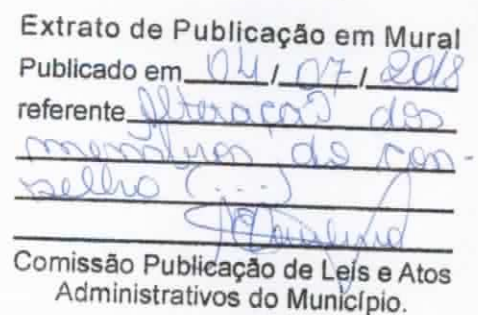 Extrato de Publicação em Mural
Publicado em 04 / 07 / 2018
referente Alteração dos
membros do con-
selho (...)
Comissão Publicação de Leis e Atos
Administrativos do Município.